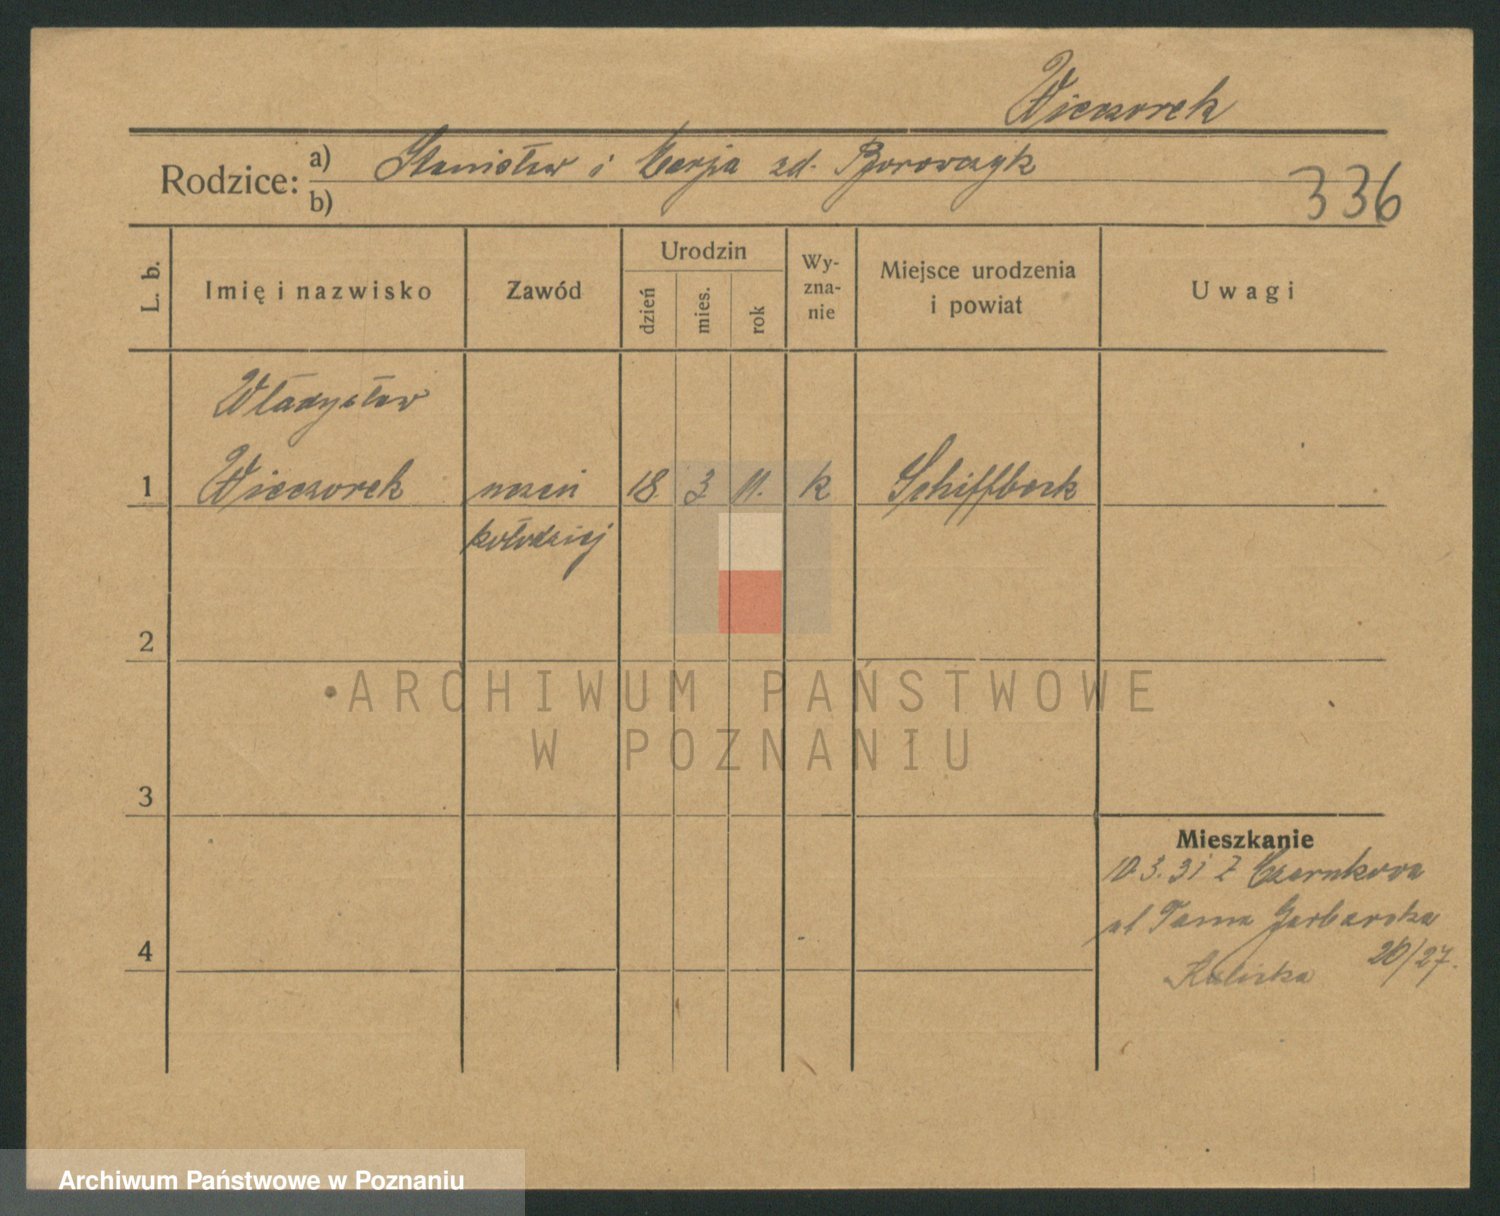 Wieczorek
Rodzice: a) Stanisław i Marja zd. Borowczyk
b)
336
L. b.
Imię i nazwisko
Zawód
Urodzin
dzień
mies.
rok
Wy-
zna-
nie
Miejsce urodzenia
i powiat
Uwagi
Władysław
1 Wieczorek uczeń 18. 3 11. k Schiffbeck
kołodziej
2
3
4
Mieszkanie
10.3.31 z Czarnkowa
ul Tama Garbarska
26/27.
Kaliska
ARCHIWUM PAŃSTWOWE
W POZNANIU
Archiwum Państwowe w Poznaniu